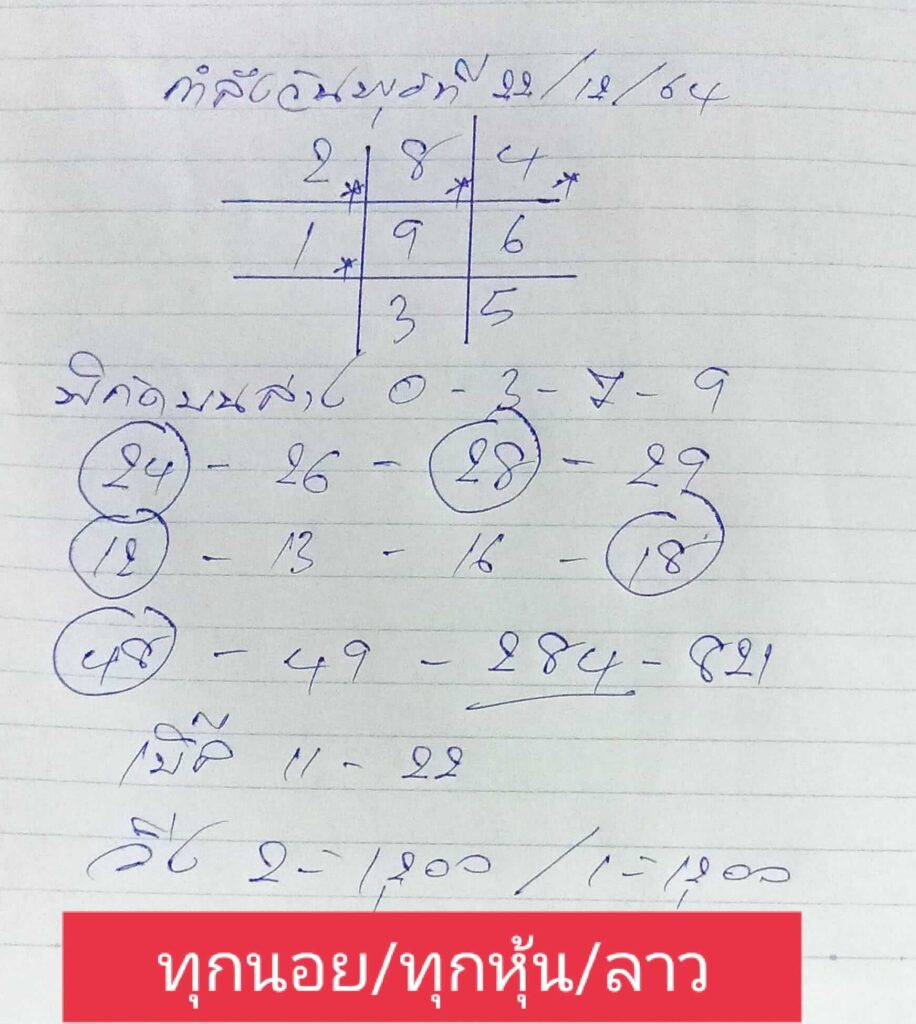 กำลังวันพุธที่ 22/12/64
2* 8* 4*
1* 9 6
3 5
พิกัดบนล่าง 0 - 3 - 7 - 9
24 - 26 - 28 - 29
12 - 13 - 16 - 18
48 - 49 - 284 - 821
เบิ้ล 11 - 22
วิ่ง 2 = 1,200 / 1 = 1,200
ทุกนอย/ทุกหุ้น/ลาว